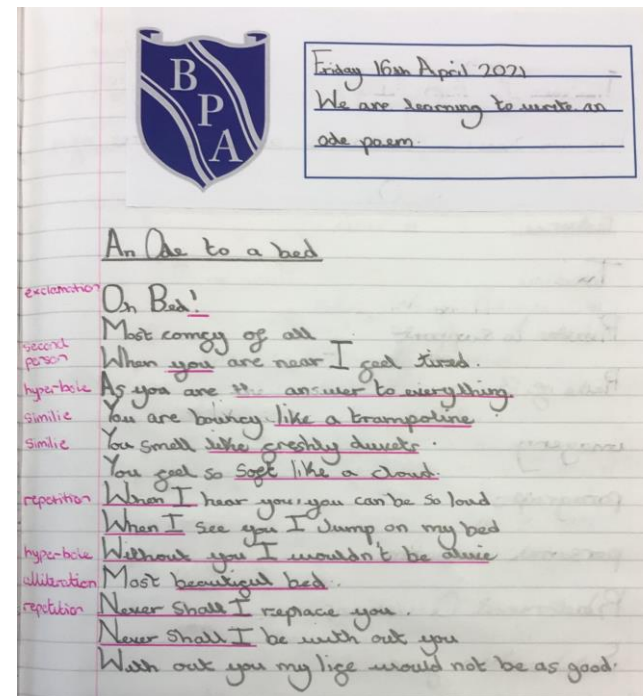 B
P
A
Friday 16th April 2021
We are learning to write an
ode poem.
An Ode to a bed
exclamation Oh Bed!
Most comfy of all
second person When you are near I feel tired.
hyperbole As you are the answer to everything.
similie You are bouncy like a trampoline
similie You smell like freshly duvets.
You feel so soft like a cloud.
repetition When I hear you, you can be so loud
When I see you I Jump on my bed
hyperbole Without you I wouldn't be alive
alliteration Most beautiful bed.
repetition Never Shall I replace you.
Never Shall I be with out you
With out you my life would not be as good.